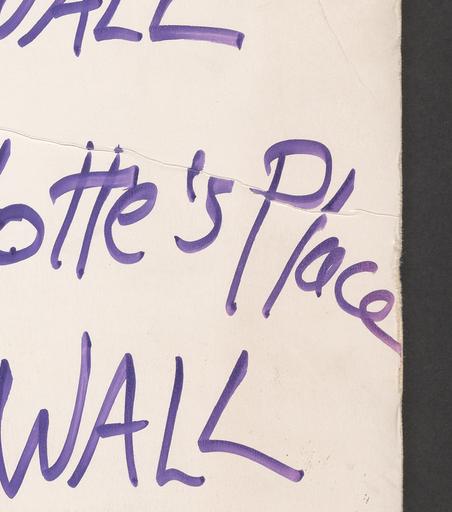 WALL
otte's Place
WALL